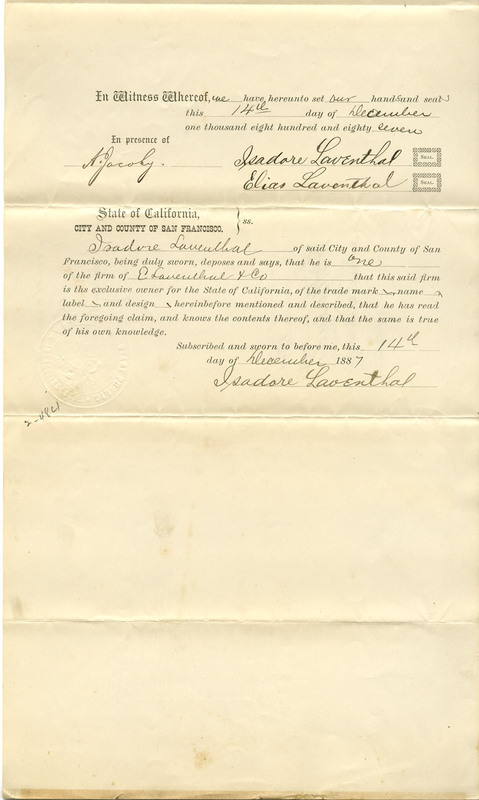 In Witness Whereof, we have hereunto set our hands and seals
this 14th day of December
one thousand eight hundred and eighty seven
In presence of
N. Jacoby. Isadore Laventhal SEAL.
Elias Laventhal SEAL.
State of California,
CITY AND COUNTY OF SAN FRANCISCO. } ss.
Isadore Laventhal of said City and County of San
Francisco, being duly sworn, deposes and says, that he is one
of the firm of E. Laventhal & Co that this said firm
is the exclusive owner for the State of California, of the trade mark name
label and design hereinbefore mentioned and described, that he has read
the foregoing claim, and knows the contents thereof, and that the same is true
of his own knowledge.
Subscribed and sworn to before me, this 14th
day of December 1887
Isadore Laventhal